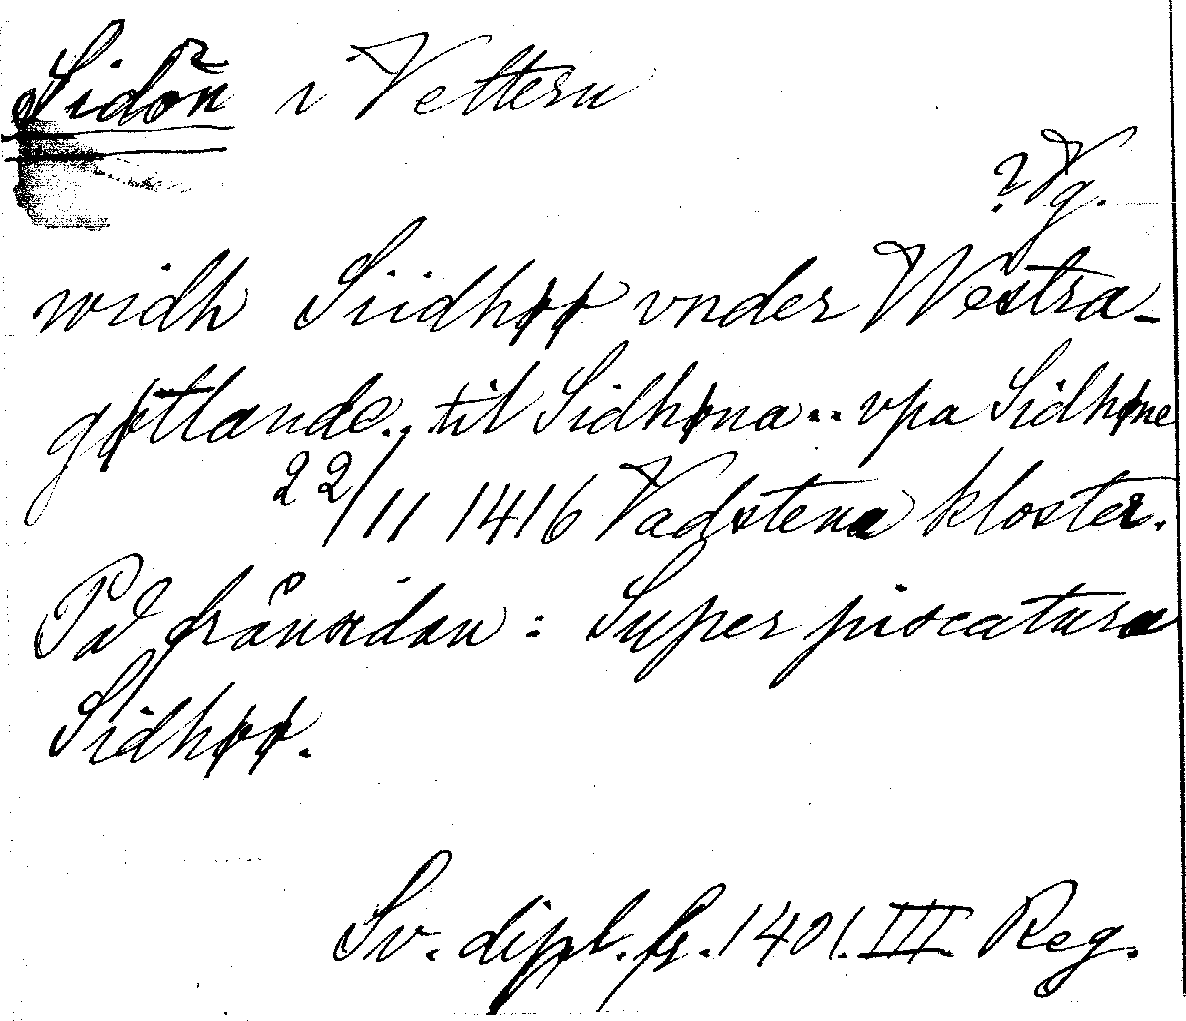 Sidön i Vettern
? Vg.
widh Siidhøø vnder Westra-
gøtlande.. til Sidhøna .. vpa Sidhøne
22/11 1416 Vadstena kloster.
På frånsidan: Super piscatura
Sidhøø.
Sv. dipl. fr. 1401. III Reg.